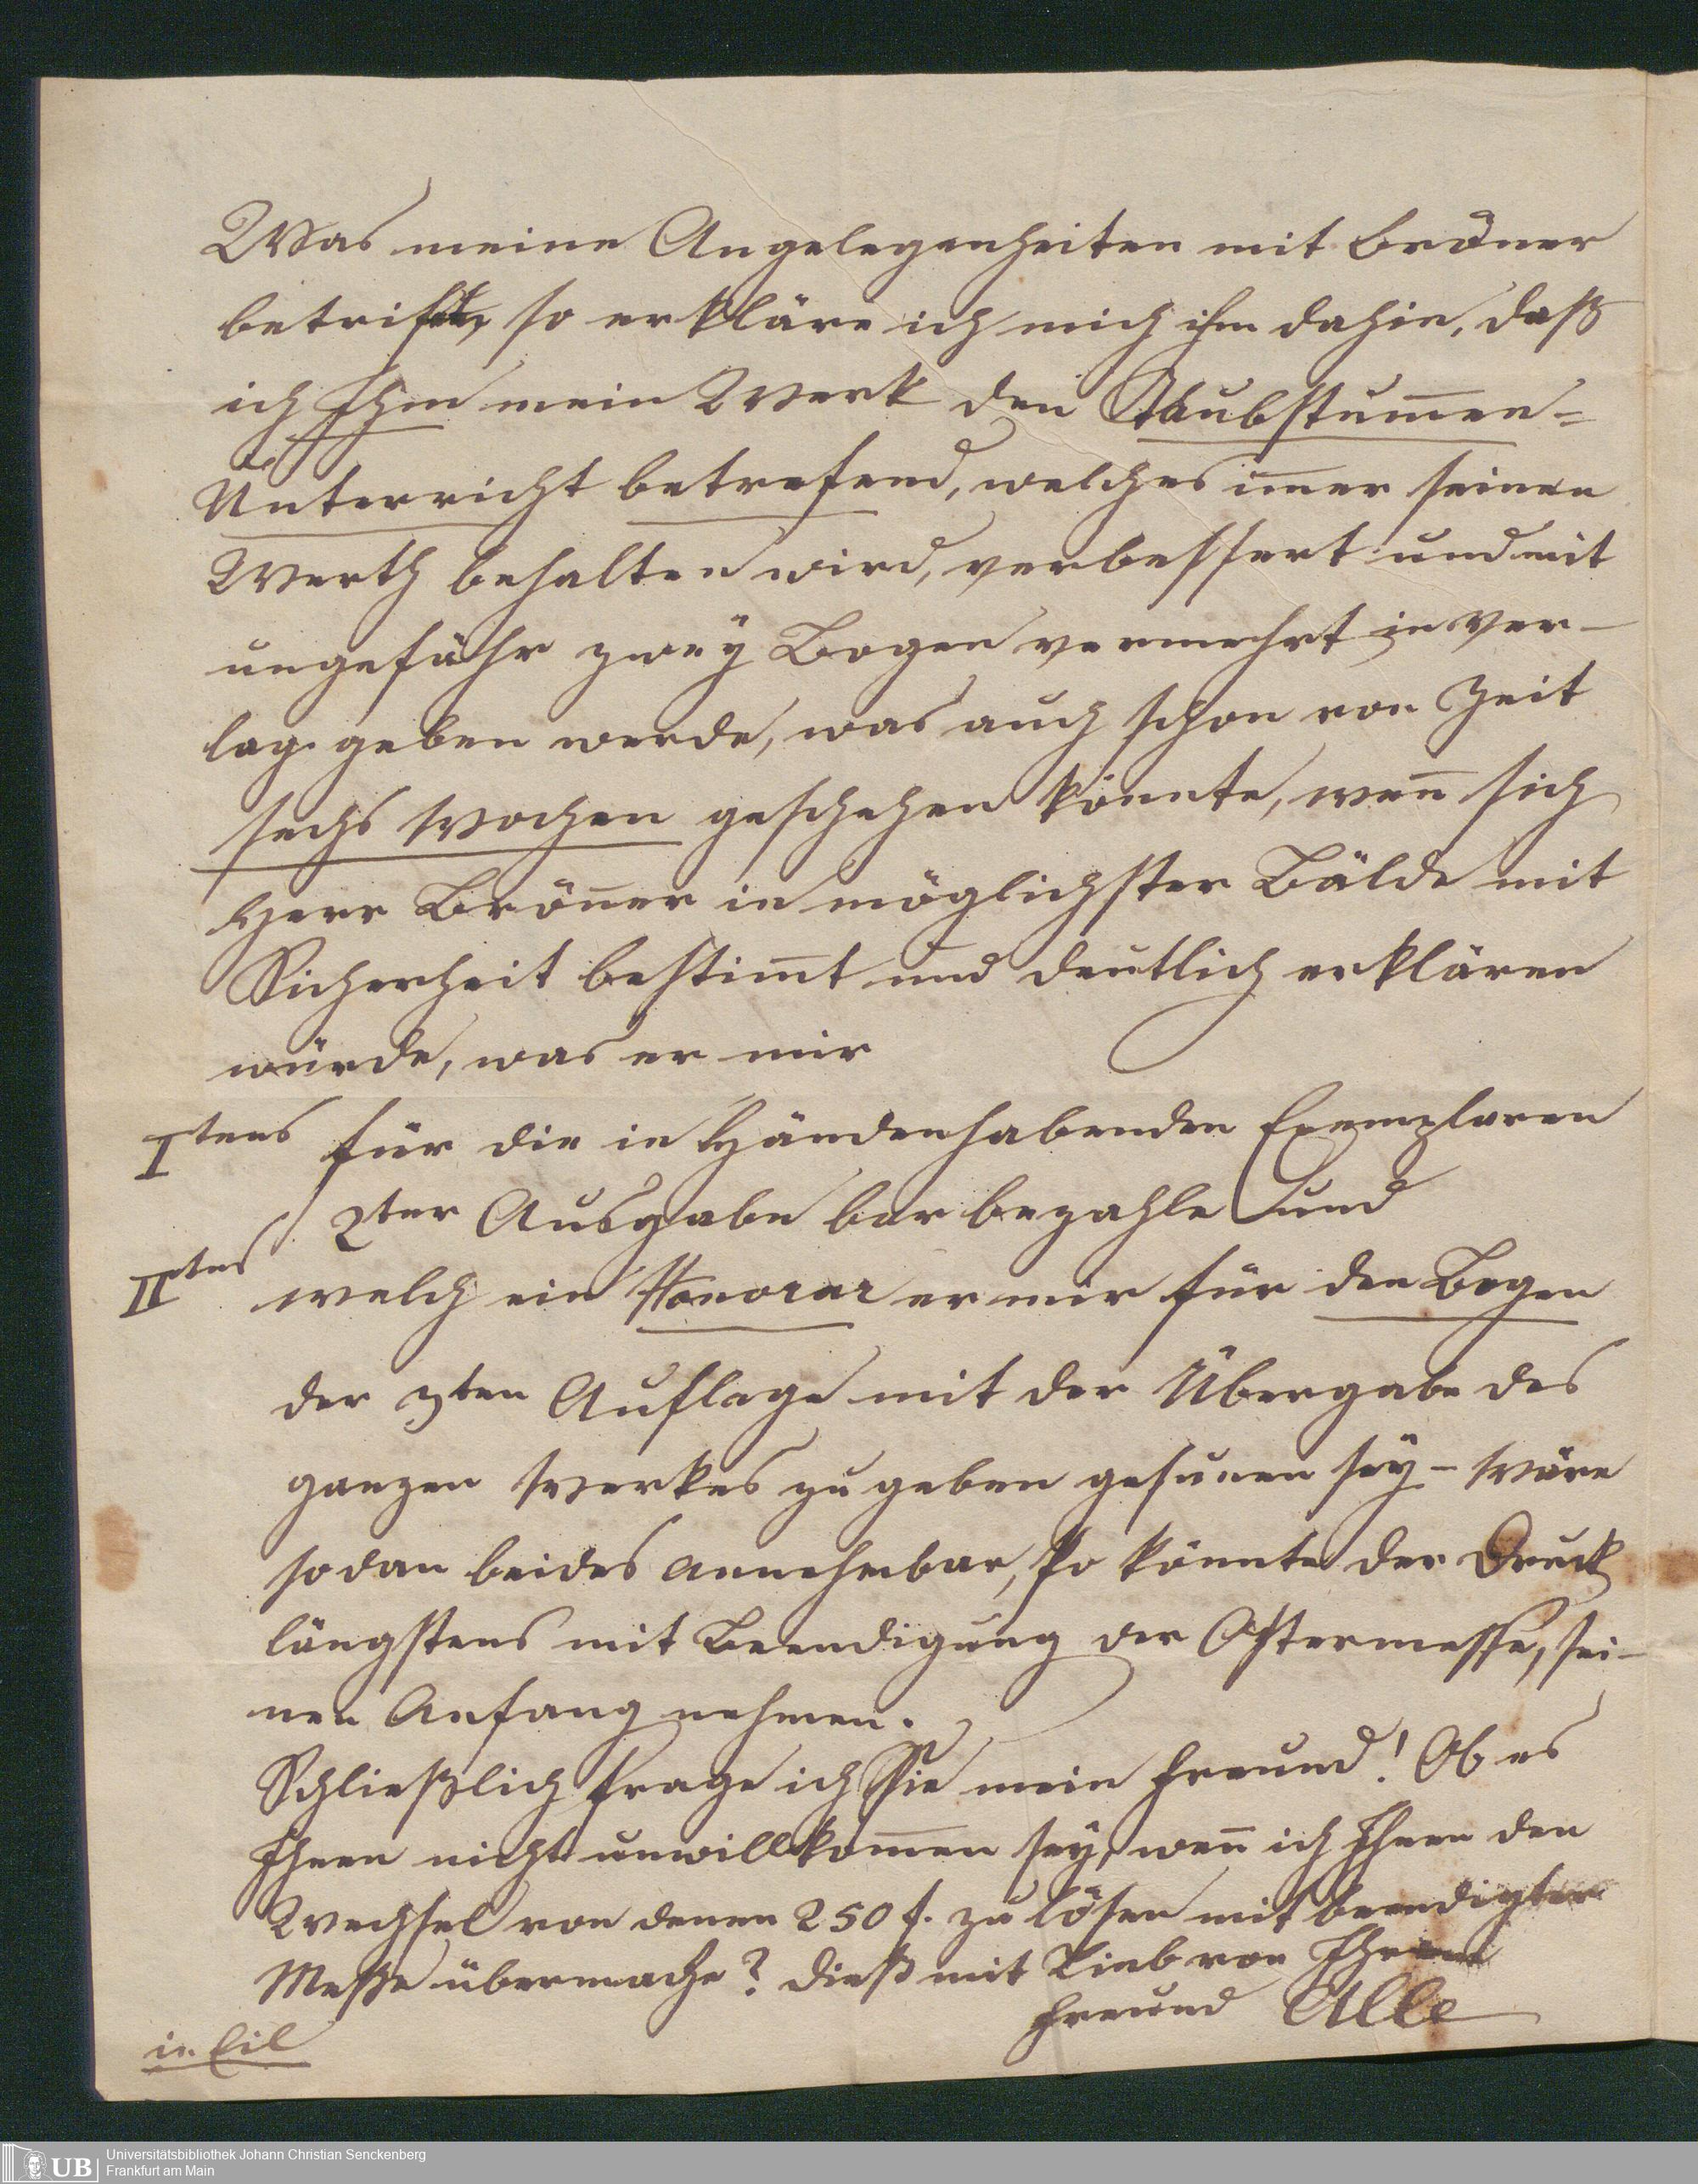 Was meine Angelegenheiten mit Bröner
betrift, so erkläre ich mich ihm dahin, daß
ich Ihm mein Werk den Taubstum̄en-
Unterricht betrefend, welches im̄er seinen
Werth behalten wird, verbessert und mit
ungefähr zweÿ Bogen vermehrt in Ver-
lag geben werde, was auch schon von Zeit
sechs Wochen geschehen könnte, wen̄ sich
Herr Brön̄er in möglichster Bälde mit
Sicherheit bestim̄t und deutlich erklären
würde, was er mir
Itens für die in Händenhabenden Exemplaren
2ter Ausgabe bar bezahle und
IItens welch ein Honorar er mir für den Bogen
der 3ten Auflage mit der Übergabe des
ganzen Werkes zu geben gesunen seÿ - wäre
sodan beides annehmbar, so könnte der Druck
längstens mit Beendigung der Ostermesse, sei-
nen Anfang nehmen.
Schließlich frage ich Sie mein Freund! Ob es
Ihnen nicht unwillkom̄en seÿ, wen̄ ich Ihnen den
Wechsel von denen 250 f. zu lösen mit beendigter
Messe übermache? dieß mit Lieb von Ihrem
Freund Alle
in Eil
UB
Universitätsbibliothek Johann Christian Senckenberg
Frankfurt am Main